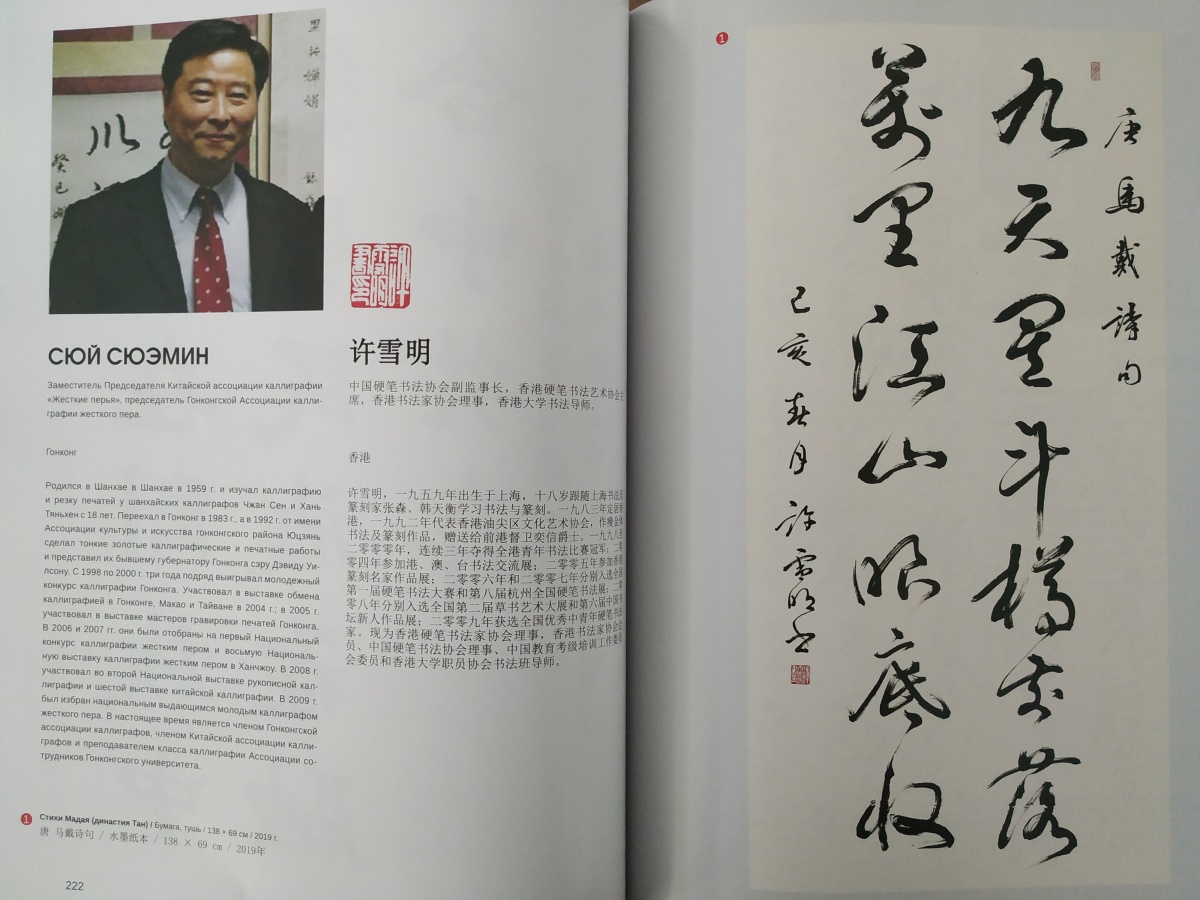 里
嬋娟
川
癸巳
СЮЙ СЮЭМИН
Заместитель Председателя Китайской ассоциации каллиграфии
«Жесткие перья», председатель Гонконгской Ассоциации калли-
графии жесткого пера.
Гонконг
Родился в Шанхае в Шанхае в 1959 г. и изучал каллиграфию
и резку печатей у шанхайских каллиграфов Чжан Сен и Хань
Тяньхен с 18 лет. Переехал в Гонконг в 1983 г., а в 1992 г. от имени
Ассоциации культуры и искусства гонконгского района Юцзянь
сделал тонкие золотые каллиграфические и печатные работы
и представил их бывшему губернатору Гонконга сэру Дэвиду Уи-
лсону. С 1998 по 2000 г. три года подряд выигрывал молодежный
конкурс каллиграфии Гонконга. Участвовал в выставке обмена
каллиграфией в Гонконге, Макао и Тайване в 2004 г.; в 2005 г.
участвовал в выставке мастеров гравировки печатей Гонконга.
В 2006 и 2007 гг. они были отобраны на первый Националь-
конкурс каллиграфии жестким пером и восьмую Националь-
ную выставку каллиграфии жестким пером в Ханчжоу. В 2008 г.
участвовал во второй Национальной выставке рукописной кал-
лиграфии и шестой выставке китайской каллиграфии. В 2009 г.
был избран национальным выдающимся молодым каллиграфом
жесткого пера. В настоящее время является членом Гонконгской
ассоциации каллиграфов, членом Китайской ассоциации калли-
графов и преподавателем класса каллиграфии Ассоциации со-
трудников Гонконгского университета.
许雪明
中国硬笔书法协会副监事长，香港硬笔书法艺术协会主
席，香港书法家协会理事，香港大学书法导师。
香港
许雪明，一九五九年出生于上海，十八岁跟随上海书法及
篆刻家张森、韩天衡学习书法与篆刻。一九八三年定居香
港，一九九二年代表香港油尖区文化艺术协会，作瘦金体
书法及篆刻作品，赠送给前港督卫奕信爵士。一九九八至
二零零零年，连续三年夺得全港青年书法比赛冠军；二零
零四年参加港、澳、台书法交流展；二零零五年参加香港
篆刻名家作品展；二零零六年和二零零七年分别入选全国
第一届硬笔书法大赛和第八届杭州全国硬笔书法展；二零
零八年分别入选全国第二届草书艺术大展和第六届中国书
坛新人作品展；二零零九年获选全国优秀中青年硬笔书法
家。现为香港硬笔书法家协会理事，香港书法家协会会
员、中国硬笔书法协会理事、中国教育考级培训工作委员
会委员和香港大学职员协会书法班导师。
1 Стихи Мадая (династия Тан) / Бумага, тушь / 138 × 69 см / 2019 г.
唐 马戴诗句 / 水墨纸本 / 138 × 69 cm / 2019年
222
1
唐馬戴詩句
九天星斗樽前落
萬里江山眼底收
己亥春月許雪明書